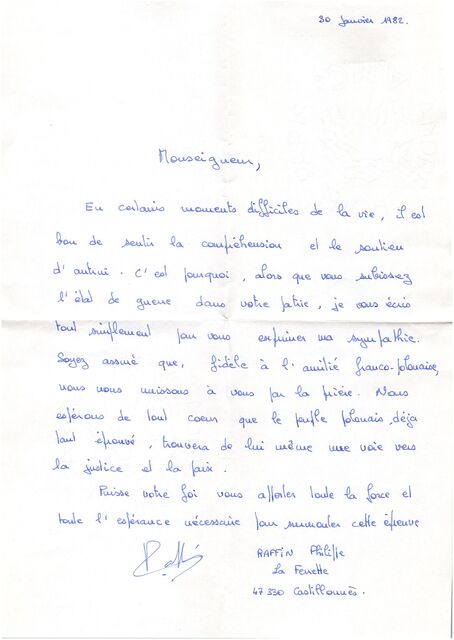 30 Janvier 1982.
Monseigneur,
En certains moments difficiles de la vie, il est
bon de sentir la compréhension et le soutien
d'autrui. C'est pourquoi, alors que vous subissez
l'état de guerre dans votre patrie, je vous écris
tout simplement pour vous exprimer ma sympathie.
Soyez assuré que, fidèle à l'amitié franco-polonaise,
nous nous unissons à vous par la prière. Nous
espérons de tout coeur que le peuple polonais, déjà
tant éprouvé, trouvera de lui même une voie vers
la justice et la paix.
Puisse votre foi vous apporter toute la force et
toute l'espérance nécessaire pour surmonter cette épreuve
RAFFIN Philippe
La Ferrette
47330 Castillonnès.